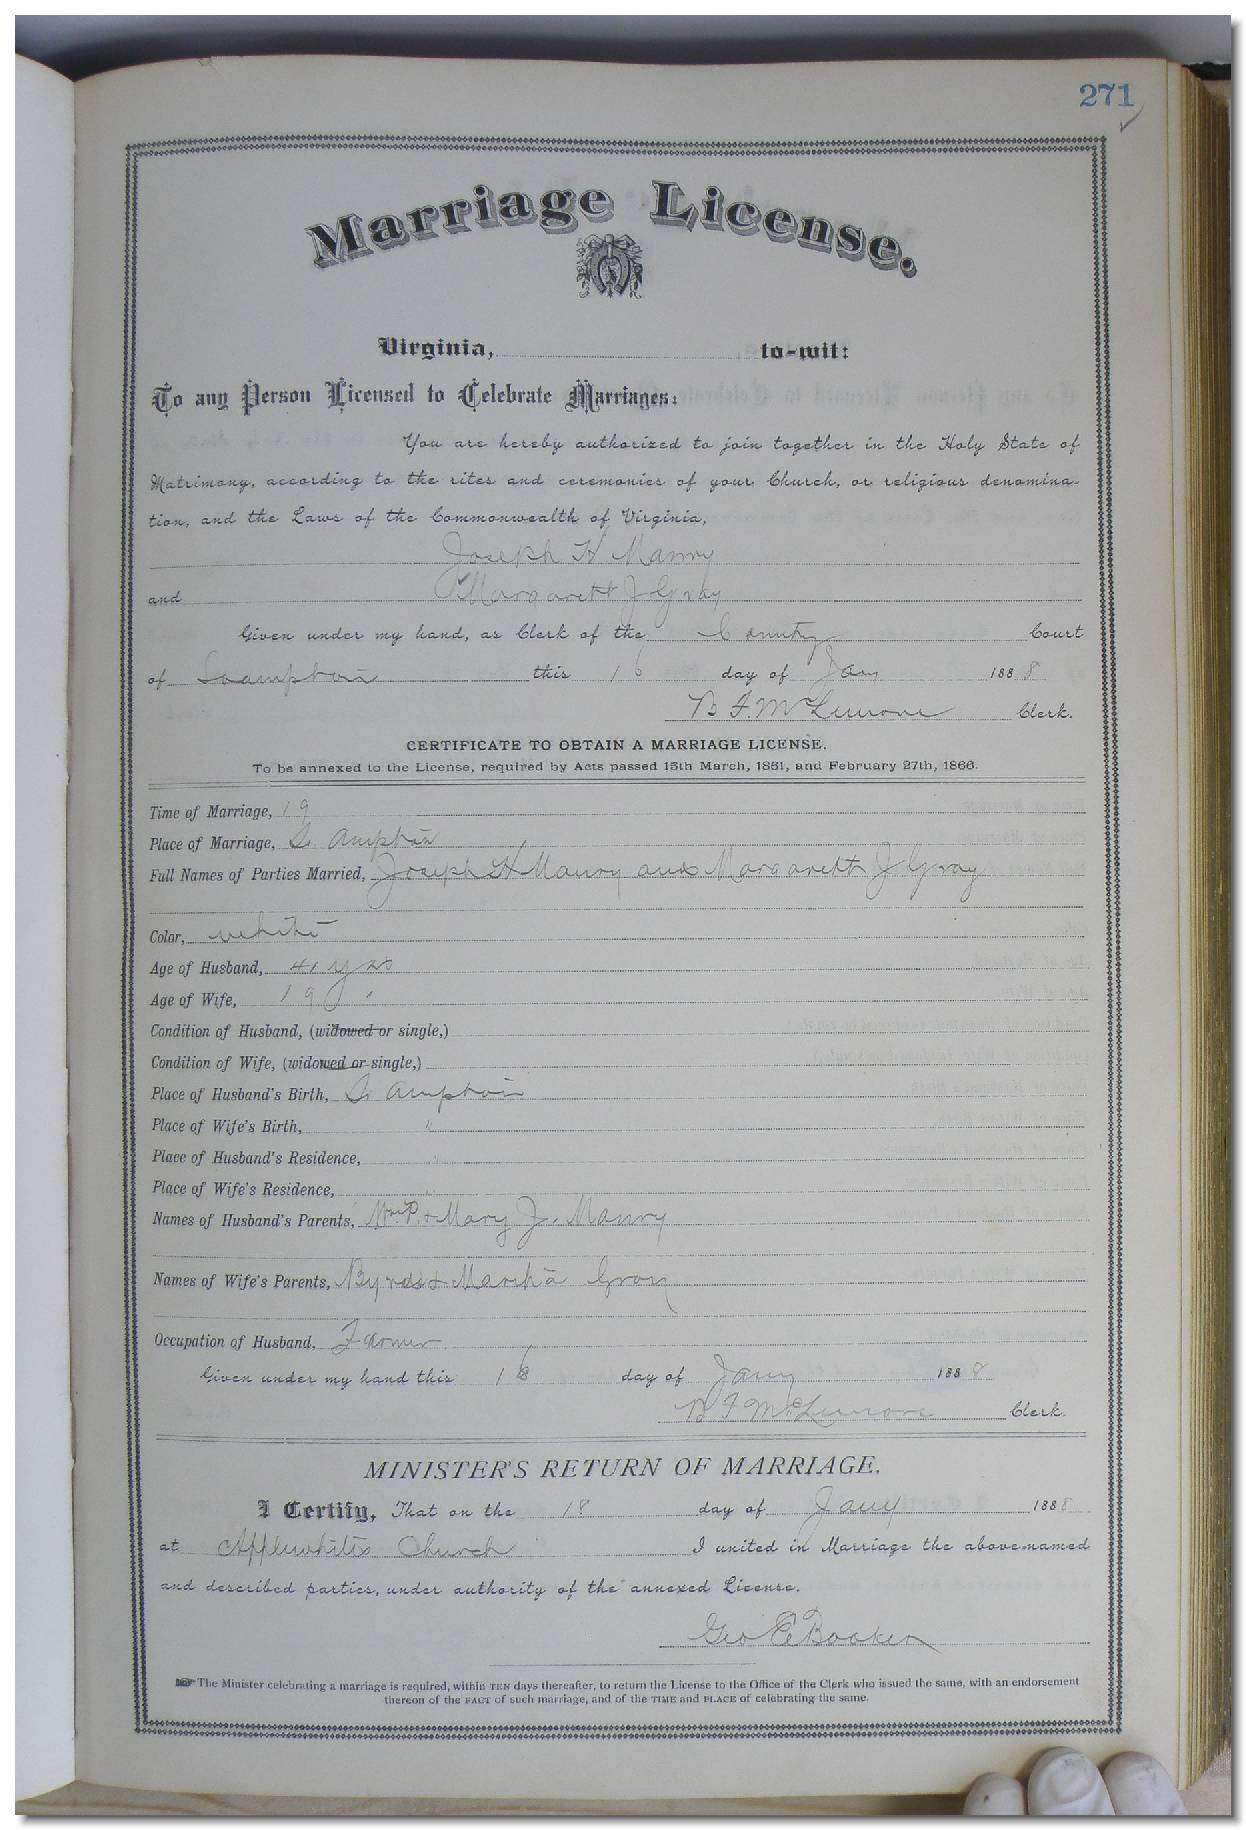 271
Marriage License.
Virginia, to-wit:
To any Person Licensed to Celebrate Marriages:
You are hereby authorized to join together in the Holy State of
Matrimony, according to the rites and ceremonies of your Church, or religious denomina-
tion, and the Laws of the Commonwealth of Virginia,
Joseph H Manry
and Margarett J Gray
Given under my hand, as Clerk of the County Court
of Soampton this 16 day of Jany 1888
B. F. McLemore Clerk.
CERTIFICATE TO OBTAIN A MARRIAGE LICENSE.
To be annexed to the License, required by Acts passed 15th March, 1861, and February 27th, 1866.
Time of Marriage, 19
Place of Marriage, So ampton
Full Names of Parties Married, Joseph H Manry and Margarett J Gray
Color, white
Age of Husband, 41 yrs
Age of Wife, 19 "
Condition of Husband, (widowed or single,)
Condition of Wife, (widowed or single,)
Place of Husband's Birth, So ampton
Place of Wife's Birth, "
Place of Husband's Residence, "
Place of Wife's Residence, "
Names of Husband's Parents, Wm P. & Mary J. Manry
Names of Wife's Parents, & Martha Gray
Occupation of Husband, Farmer
Given under my hand this 16 day of Jany 1888
B F McLemore Clerk.
MINISTER'S RETURN OF MARRIAGE.
I Certify, That on the 18 day of Jany 1888
at Applewhites Church I united in Marriage the above-named
and described parties, under authority of the annexed License.
Geo E Booker
The Minister celebrating a marriage is required, within TEN days thereafter, to return the License to the Office of the Clerk who issued the same, with an endorsement
thereon of the FACT of such marriage, and of the TIME and PLACE of celebrating the same.